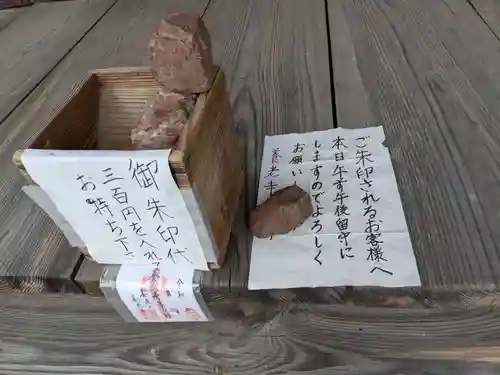 ご朱印されるお客様へ
本日午す午後留守に
しますのでよろしく
お願い
御朱印代
三百円を入れ
お持ち下さ